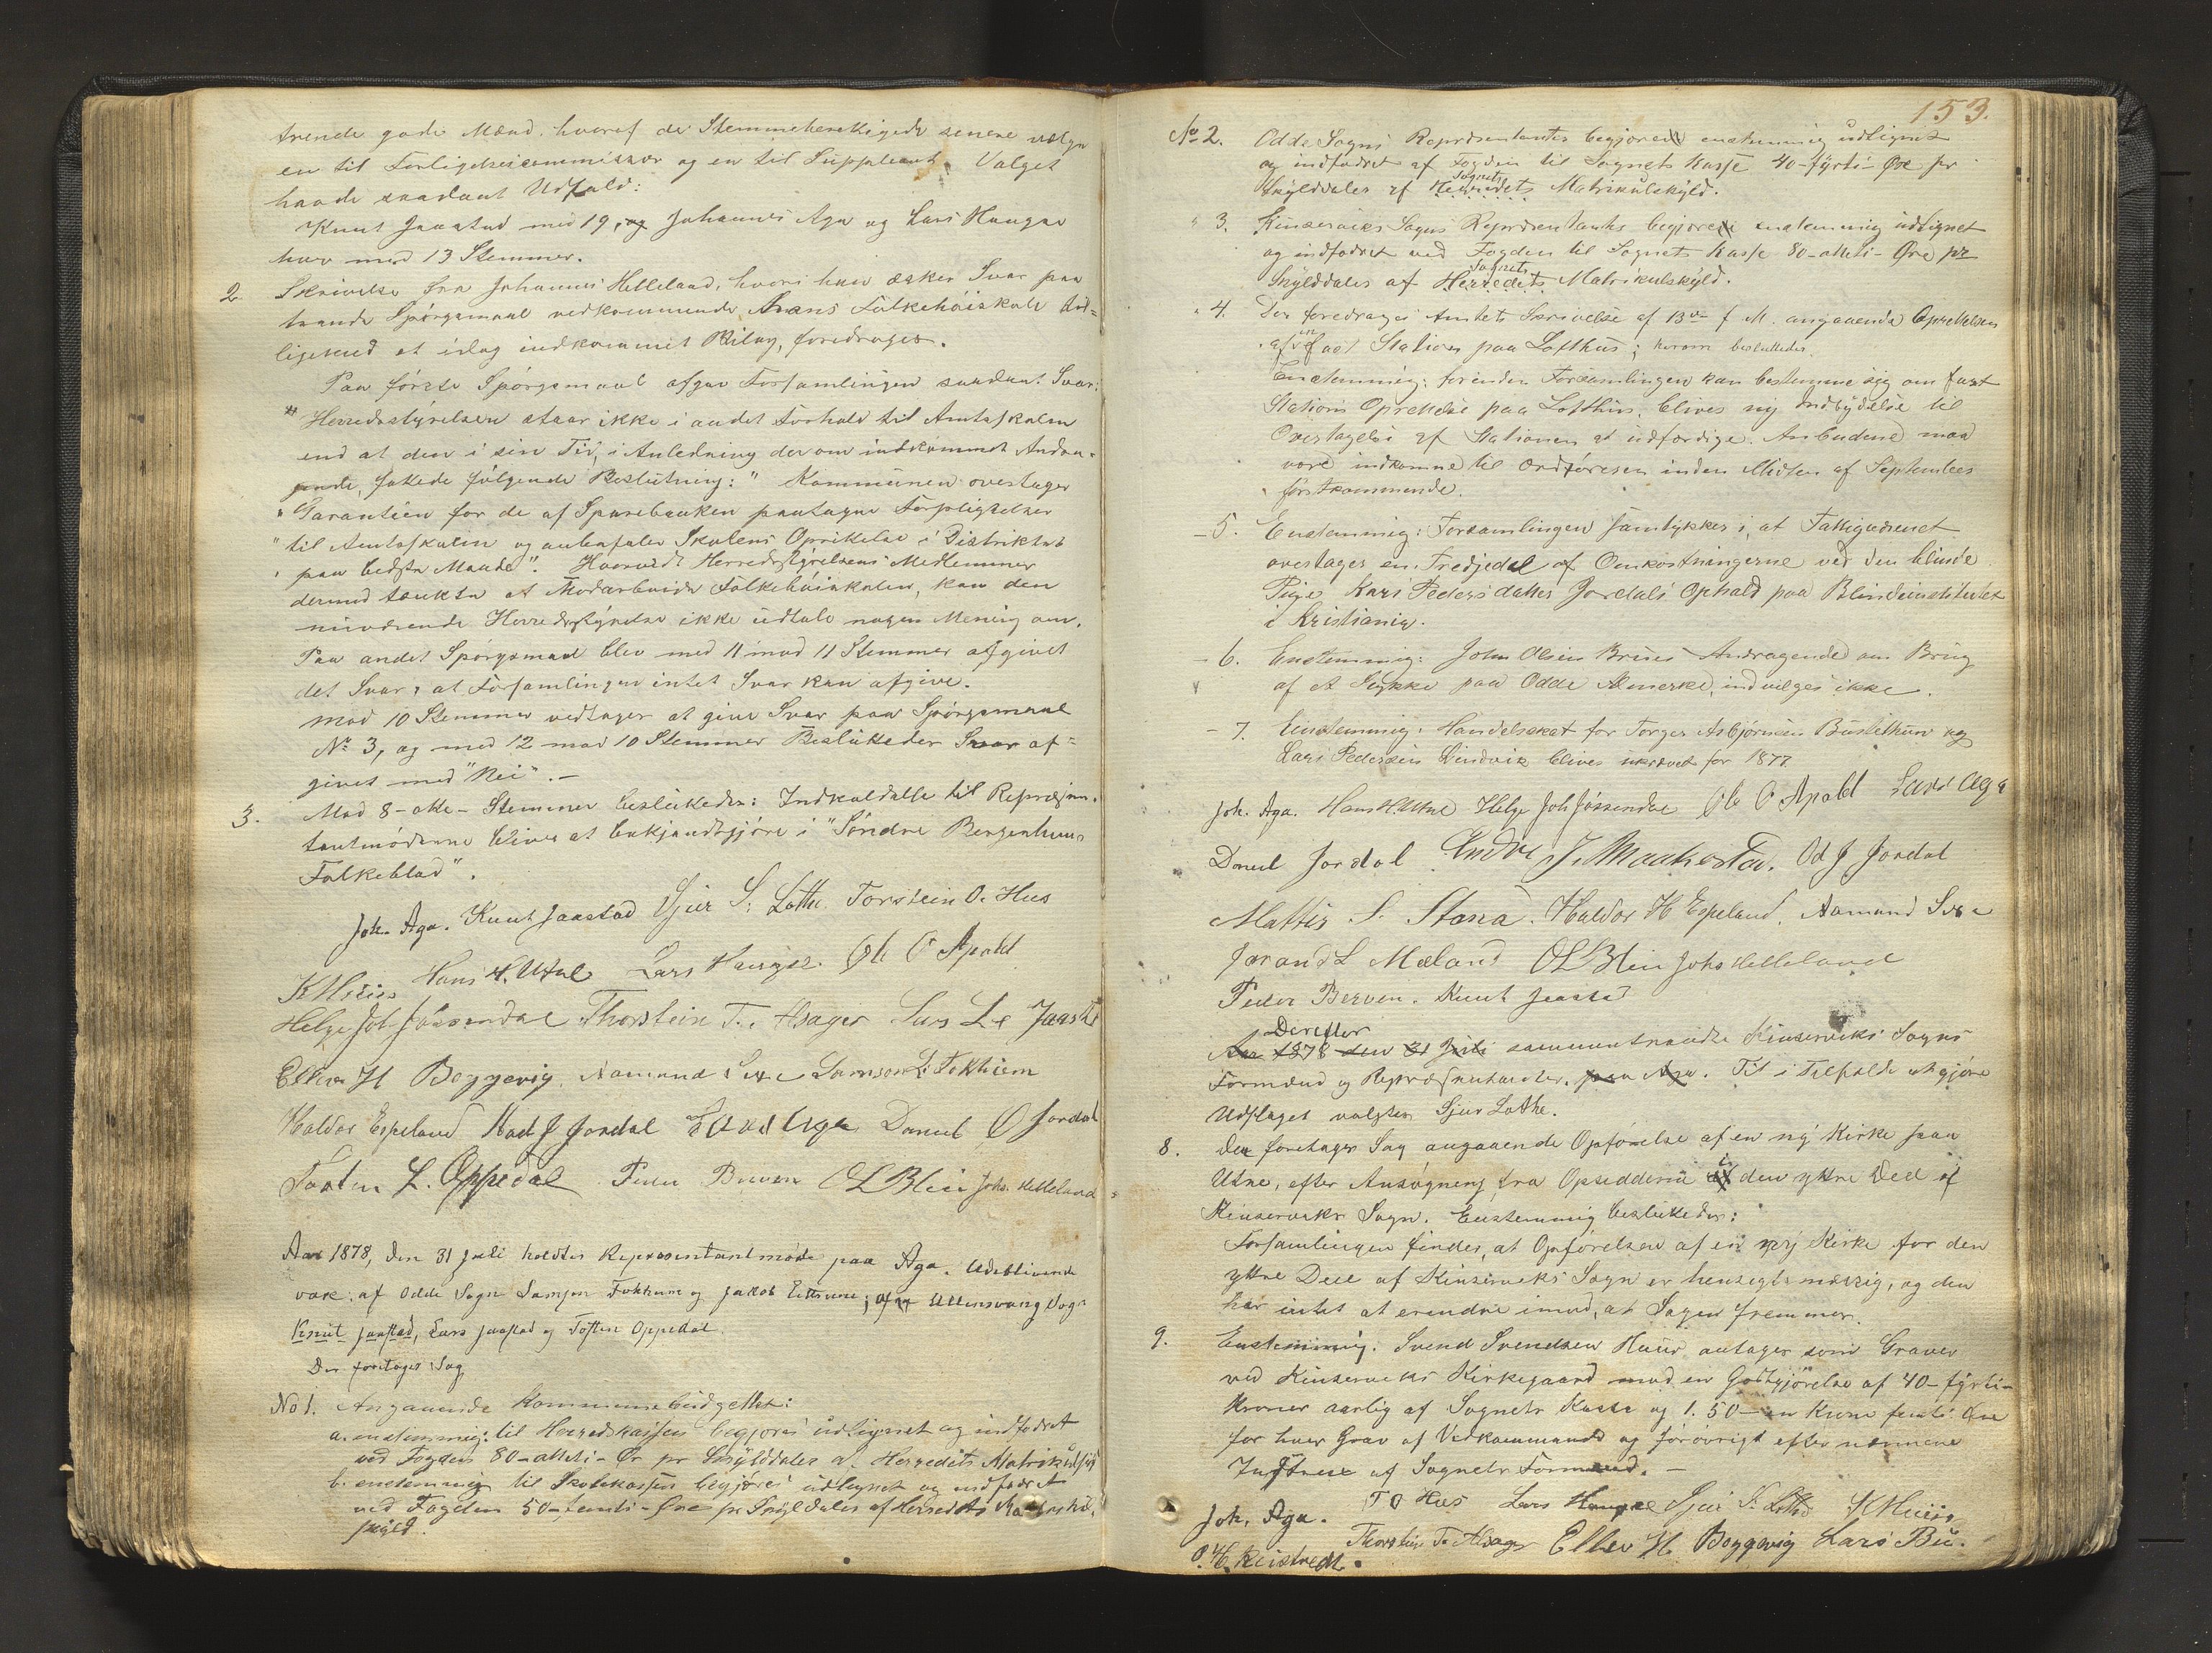 trende gode Mænd, hvoraf de Stemmeberettigede senere vælge
en til Forligelsescommissær og en til Suppleant. Valget
havde saadant Udfald:
Knut Jaastad med 19, og Johannes Aga og Lars Haugse
hver med 13 Stemmer.
2. Skrivelse fra Johannes Helleland, hvori han æsker Svar paa
trende Spörgsmaal vedkommende Folkehöiskole til=
ligemed et idag indkommet Bilag, foredroges.
Paa förste Spörgsmaal afgav Forsamlingen saadant Svar:
"Herredsstyrelsen staar ikke i andet Forhold til Amtsskolen
end at den i sin Tid, i Anledning derom indkommet Andra-
gende, fattede fölgende Beslutning: "Kommunen overtager
"Garantien for de af Sparebanken paatagne Forpligtelser
"til Amtsskolen og anbefaler Skolens Oprettelse i Distriktet
"paa bedste Maade". Hvorvidt Herredsstyrelsens Medlemmer
dermed tænkte at Modarbeide Folkehöiskolen, kan den
nuværende Herredsstyrelse ikke udtale nogen Mening om.
Paa andet Spörgsmaal blev med 11 imod 11 Stemmer afgivet
det Svar, at Forsamlingen intet Svar kan afgive.
Mod 10 Stemmer vedtages at give Svar paa Spörgsmaal
No 3, og med 12 mod 10 Stemmer Besluttedes Svar af=
givet med "Nei".—
3. Mod 8-otte- Stemmer besluttedes: Indkaldelse til Repræsen-
tantmöderne bliver at bekjendtgjöre i "Söndre Bergenhuus
Folkeblad".
Joh. Aga. Knut Jaastad Sjur S: Lothe Torstein O. Hus
K Huus Hans H. Utne Lars Haugse Ole O Apold
Helge Joh Jössendal Thorstein T. Alsager Lars L. Jaastad
Ellev H Boggevig Aamund Sexe Samson L: Tokheim
Haldor Espeland Odd J Jordal Lars Aga Daniel O Jordal
Tosten L. Oppedal Peder Berven O L Blei Johs Helleland
Aar 1878, den 31 Juli holdtes Repræsentantmöde paa Aga. Udeblivende
vare: af Odde Sogn Samson Tokheim og Jakob Eitrheim; af Ullensvang Sogn
Knut Jaastad, Lars Jaastad og Tosten Oppedal.
Der foretoges Sag
No 1. Angaaende Kommunebudgettet:
a. enstemmig: til Herredskassen begjöres udlignet og indfodret
ved Fogden 80-otteti- Ör pr Skylddaler af Herredets Matrikulskyld
b. enstemmig til Skolekassen begjöres udlignet og indfodret
ved Fogden 50-femti-Öre pr Skylddaler af Herredets Matrikul
skyld.
153.
No 2. Odde Sogns Repræsentanter begjærede enstemmig udlignet
og indfodret af Fogden til Sognets Kasse 40-fyrti-Öre pr
Sognets
Skylddaler af Herredets Matrikulskyld.
" 3. Kinserviks Sogns Repræsentanter begjærede enstemmig udlignet
og indfodret ved Fogden til Sognets Kasse 80-otteti- Öre pr
Sognets
Skylddaler af Herredets Matrikulskyld.
" 4. Der foredroges Amtets Skrivelse af 13de f M. angaaende Oprettelsen
af en fast Station paa Lofthus; hvorom besluttedes.
Enstemmig: forinden Forsamlingen kan bestemme sig om fast
Stations Oprettelse paa Lofthus, bliver ny Indbydelse til
Overtagelse af Stationen at udfærdige. Anbudene maa
være indkomne til Ordföreren inden Midten af September
förstkommende.
- 5. Enstemmig: Forsamlingen samtykker i, at Fattigvæsenet
overtager en Tredjedel af Omkostningerne ved den blinde
Pige Kari Pedersdatter Jordals Ophold paa Blindeinstitutet
i Kristiania.
- 6. Enstemmig: John Olsen Brues Andragende om Brug
af et Stykke paa Odde Almerke, indvilges ikke.
- 7. Enstemmig: Handelsskat for Torger Asbjörnsen Bustetun og
Lars Pedersen Vindvik blives ukrævet for 1877.
Joh. Aga. Hans H. Utne Helge Joh Jössendal Ole O Apold Lars Aga
Daniel Jordal Endre J. Maakestad. Od J Jordal
Mattis S. Stana. Haldor H Espeland. Aamund Sexe
Jorand L Mæland O L Blei Johs Helleland
Peder Berven. Knut Jaastad
Derefter
Aar 1878 den 31 Juli sammentraadte Kinserviks Sogns
Formænd og Repræsentanter. paa Aga. Til i Tilfælde at gjöre
Udslaget valgtes Sjur Lothe.
8. Der foretages Sag angaaende Opförelse af en ny Kirke paa
Utne, efter Ansögning fra Opsidderne i den yttre Deel af
Kinserviks Sogn. Enstemmig besluttedes:
Forsamlingen finder, at Opförelsen af en ny Kirke for den
yttre Deel af Kinserviks Sogn er hensigtsmæssig, og den
har intet at erindre imod, at Sagen fremmes.
9. Enstemmig: Svend Svendsen Huus antages som Graver
ved Kinserviks Kirkegaard mod en Godtgjörelse af 40-fyrti-
Kroner aarlig af Sognets Kasse og 1. 50-en Krone femti Öre
for hver Grav af Vedkommende og forövrigt efter nærmere
Instrux af Sognets Formænd.—
Joh. Aga. T O Hus Lars Haugse Sjur S. Lothe K Huus
Thorstein T. Alsager Ellev H Boggevig Lars Bu.
O. H. Reisæter.